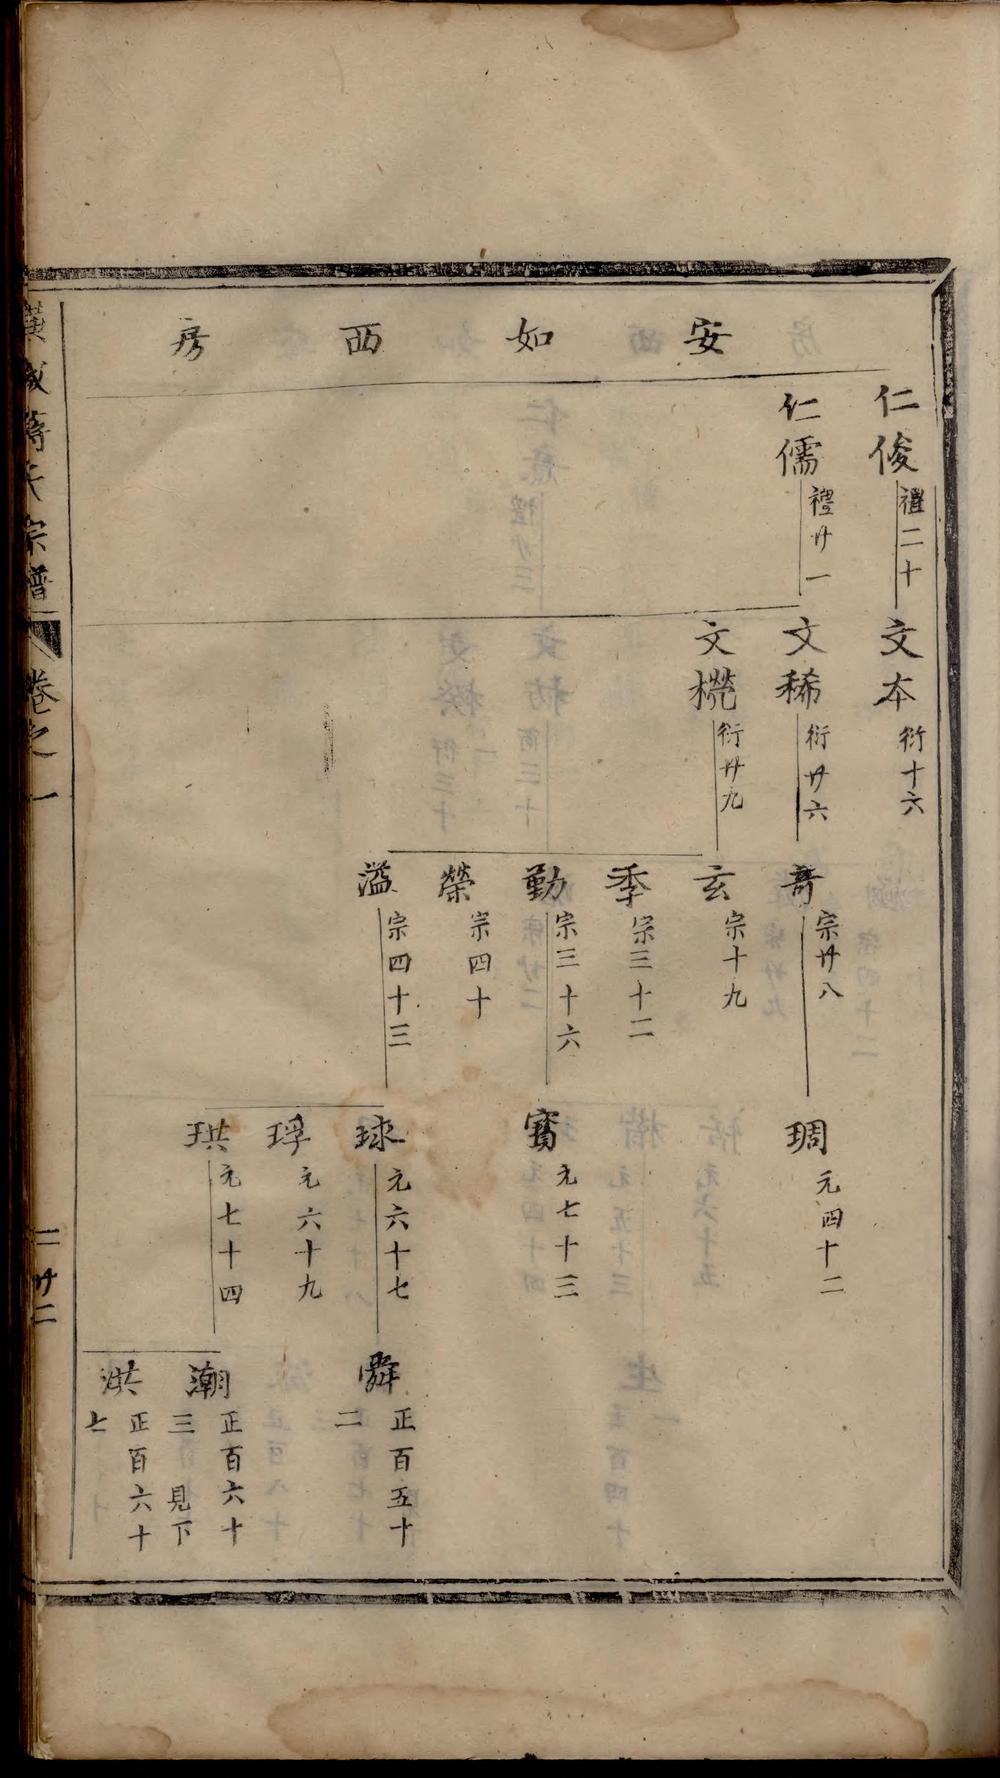 安如西房
仁俊 禮二十
仁儒 禮廿一
文本 衍十六
文稀 衍廿六
文㯠 衍廿九
奇 宗廿八
玄 宗十九
季 宗三十二
勤 宗三十六
榮 宗四十
溢 宗四十三
琱 元四十二
寳 元七十三
球 元六十七
琈 元六十九
珙 元七十四
舜 正百五十二
潮 正百六十三 見下
洪 正百六十七
蔣氏宗譜
卷之一
二 廿二